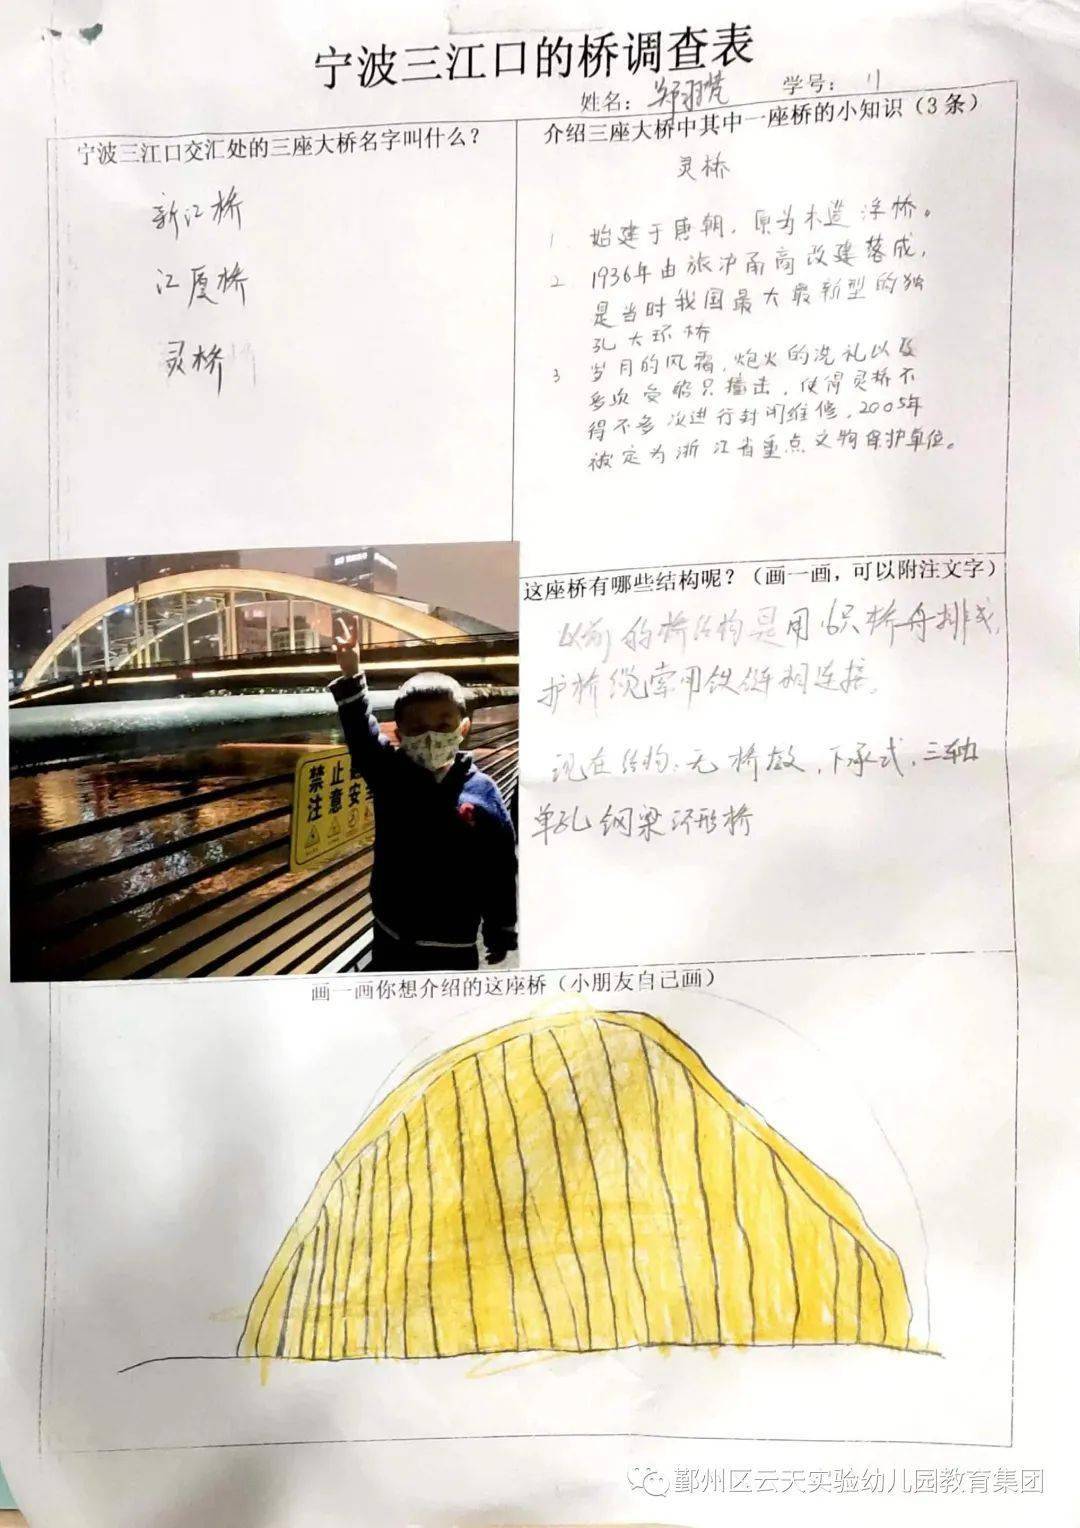 宁波三江口的桥调查表
姓名：郑羽梵 学号：11
宁波三江口交汇处的三座大桥名字叫什么？
新江桥
江厦桥
灵桥
介绍三座大桥中其中一座桥的小知识（3条）
灵桥
1. 始建于唐朝，原为木造浮桥。
2 1936年由旅沪甬商改建落成，
是当时我国最大最新型的独
孔大环桥
3 岁月的风霜，炮火的洗礼以及
多次受船只撞击，使得灵桥不
得不多次进行封闭维修，2005年
被定为浙江省重点文物保护单位。
禁止
注意安
这座桥有哪些结构呢？（画一画，可以附注文字）
以前的桥结构是用16只桥舟排成，
护桥缆索用铁链相连接。
现在结构：无桥墩，下承式，三轴
单孔钢梁环形桥
画一画你想介绍的这座桥（小朋友自己画）
鄞州区云天实验幼儿园教育集团